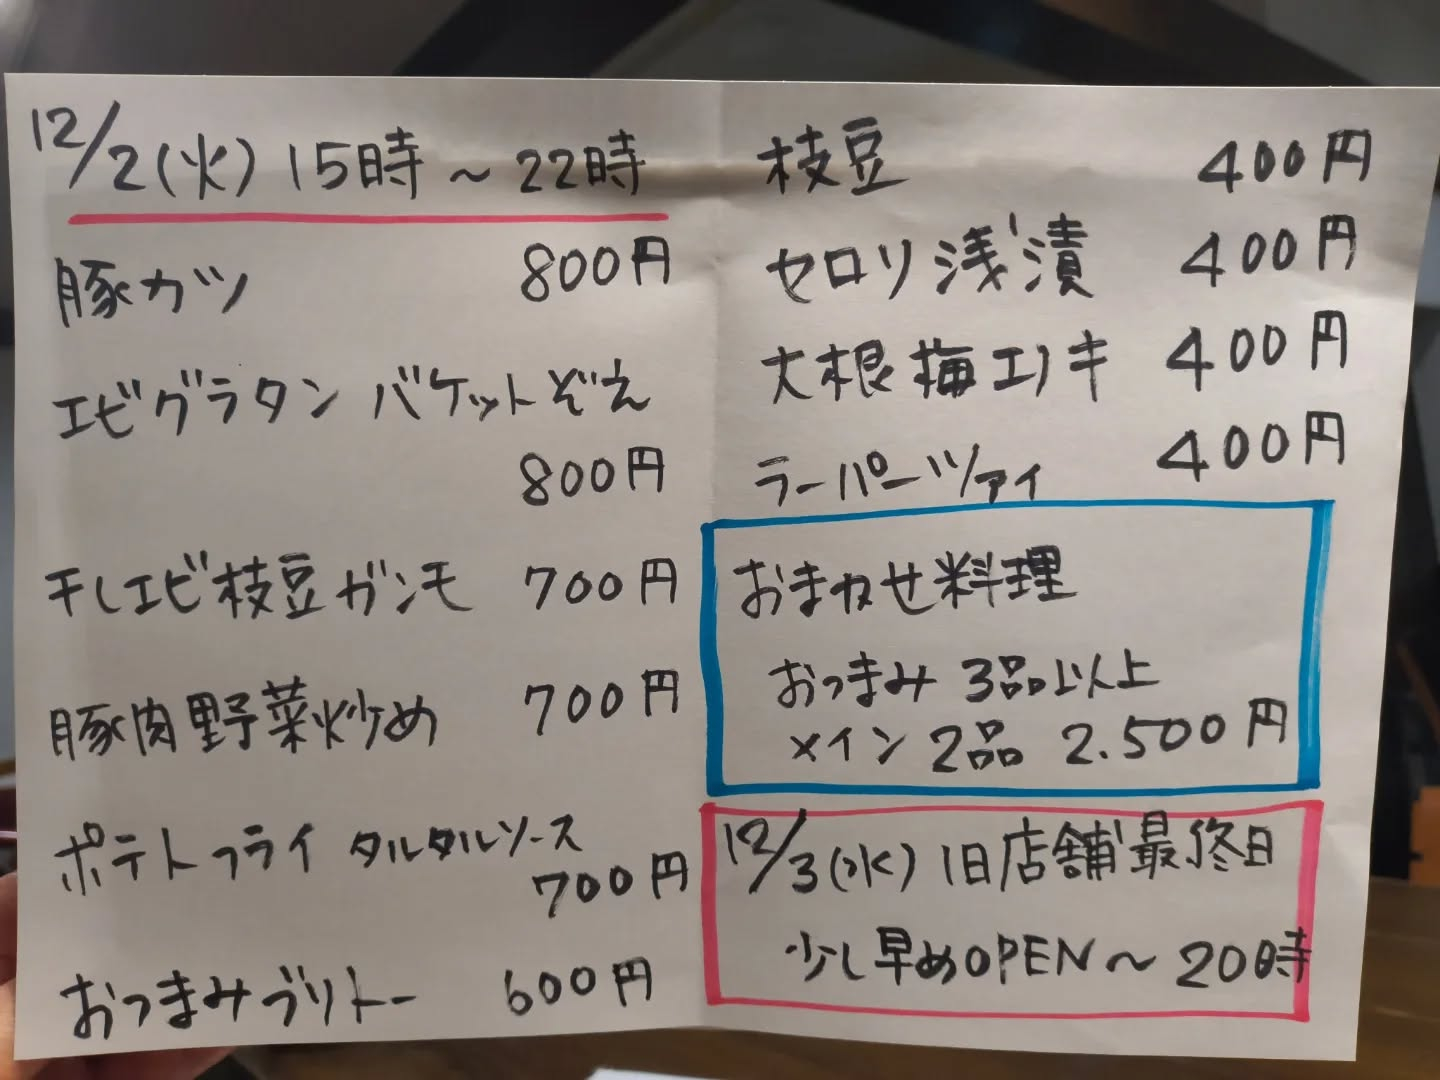 12/2(火) 15時～22時
豚カツ 800円
エビグラタン バケットぞえ
800円
干しエビ枝豆ガンモ 700円
豚肉野菜炒め 700円
ポテトフライ タルタルソース
700円
おつまみブリトー 600円
枝豆 400円
セロリ浅漬 400円
大根梅エノキ 400円
ラーパーツァイ 400円
おまかせ料理
おつまみ 3品以上
メイン 2品 2.500円
12/3(水) 旧店舗最終日
少し早めOPEN～20時